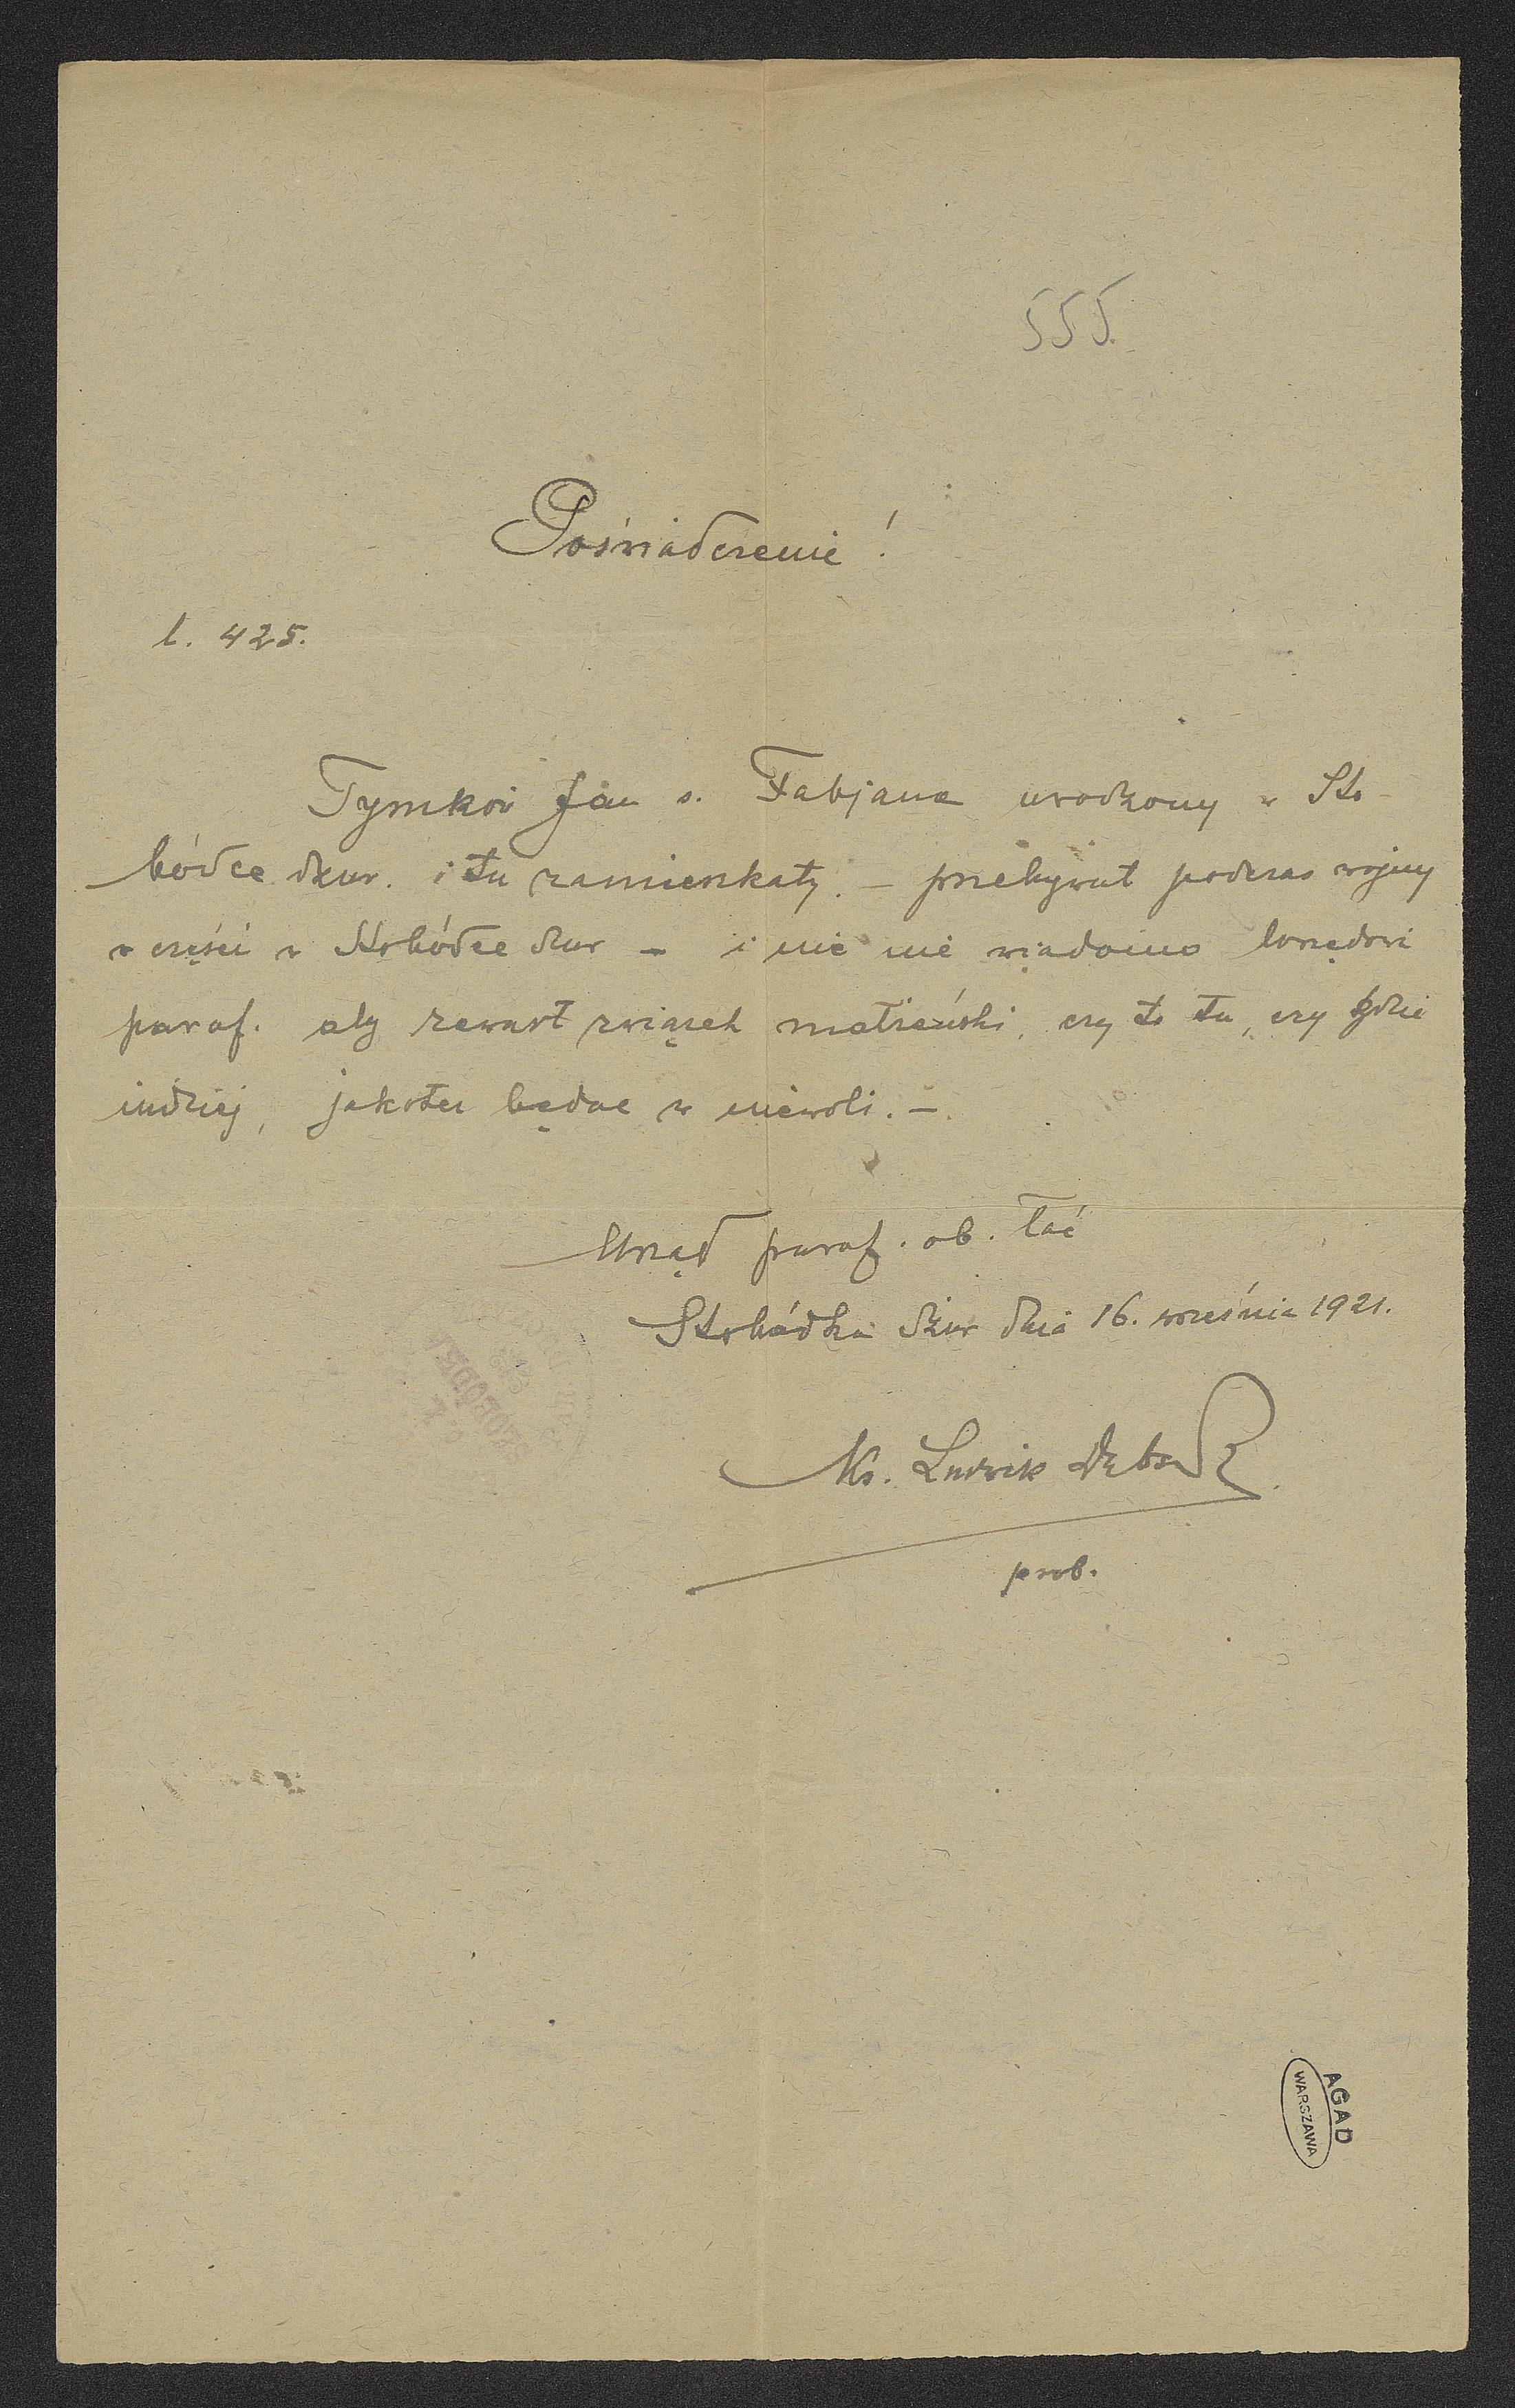 555.
Poświadczenie!
l. 425.
Tymków Jan s. Fabjana urodzony w Sło-
bódce dżur. i tu zamieszkały. – przebywał podczas wojny
w części w Słobódce dżur – i nie nie wiadomo Urzędowi
paraf. aby zawarł związek małżeński, czy to tu, czy gdzie
indziej, jakoteż będąc w niewoli. –
Urząd paraf. ob. łać
Słobódka dżur dnia 16. września 1921.
Ks. Ludwik
prob.
AGAD
WARSZAWA